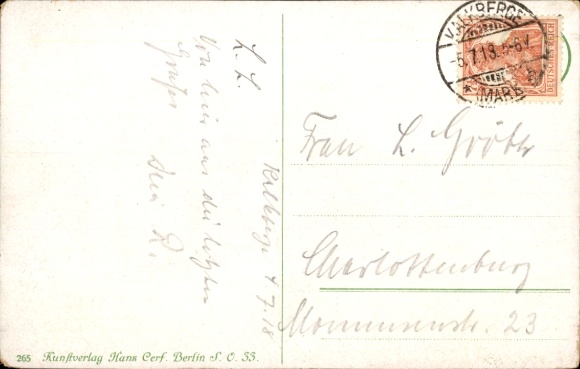 Kalkberge 4.7.18
L. L.
Von hier aus die letzten
Grüße
Dein R.
KALKBERGE
-5.7.18. 5-6V.
* (MARK) *
DEUTSCHES REICH
Frau L. Gröbler
Charlottenburg
Mommsenstr. 23
265 Kunstverlag Hans Cerf. Berlin S. O. 33.